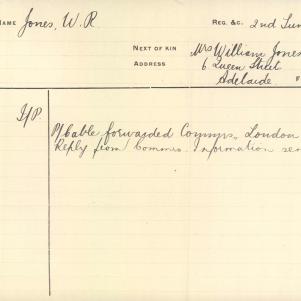 NAME Jones, W. R. REG. &C. 2nd Tun
NEXT OF KIN Mrs William Jones
ADDRESS 6 Queen Street
Adelaide F
I/P P/Cable forwarded Commrs. London
Reply from Commrs. Information sen